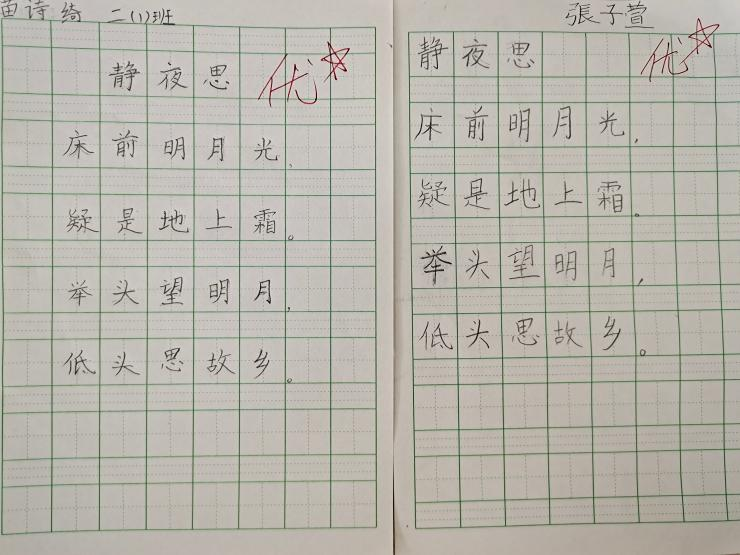 苗诗绮 二(1)班
静夜思 优
床前明月光,
疑是地上霜。
举头望明月,
低头思故乡。
張子萱
静夜思 优
床前明月光,
疑是地上霜。
举头望明月,
低头思故乡。